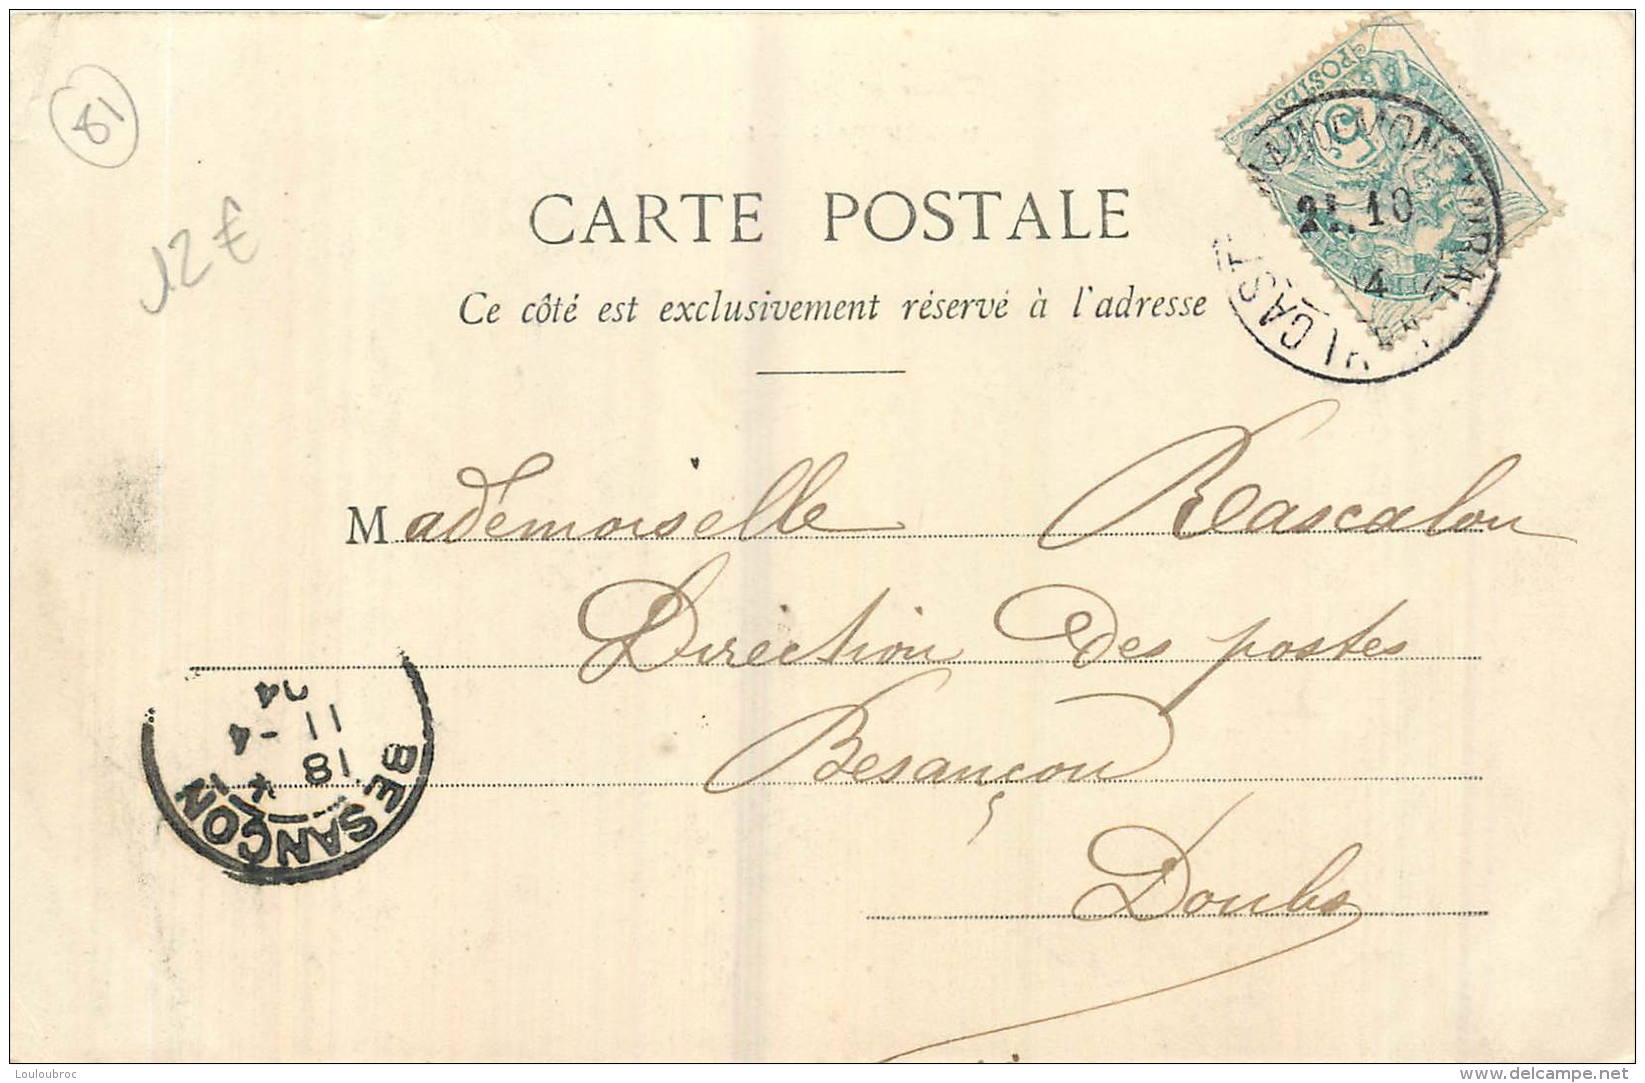 81
12€
CARTE POSTALE
Ce côté est exclusivement réservé à l'adresse
POSTES
5
2E 10
4
CAST
Mademoiselle Rascalon
Direction des postes
Besançon
Doubs
BESANÇON
18
11 - 4
04
Louloubroc
www.delcampe.net